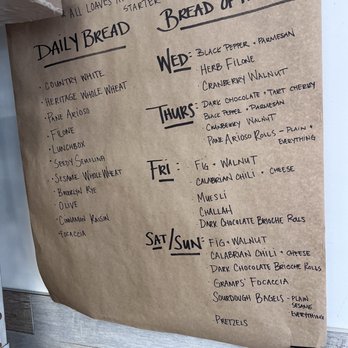 ALL LOAVES
STARTER
DAILY BREAD
• COUNTRY WHITE
• HERITAGE WHOLE WHEAT
• PANE ARIOSO
• FILONE
• LUNCHBOX
• SEEDY SEMOLINA
• SESAME WHOLE WHEAT
• BROOKLYN RYE
• OLIVE
• CINNAMON RAISIN
FOCACCIA
BREAD OF
WED: BLACK PEPPER + PARMESAN
HERB FILONE
CRANBERRY WALNUT
THURS: DARK CHOCOLATE + TART CHERRY
BLACK PEPPER + PARMESAN
CRANBERRY WALNUT
PANE ARIOSO ROLLS - PLAIN +
EVERYTHING
FRI: FIG + WALNUT
CALABRIAN CHILI + CHEESE
MUESLI
CHALLAH
DARK CHOCOLATE BRIOCHE ROLLS
SAT/SUN: FIG + WALNUT
CALABRIAN CHILI + CHEESE
DARK CHOCOLATE BRIOCHE ROLLS
GRAMPS' FOCACCIA
SOURDOUGH BAGELS - PLAIN
SESAME
EVERYTHING
PRETZELS